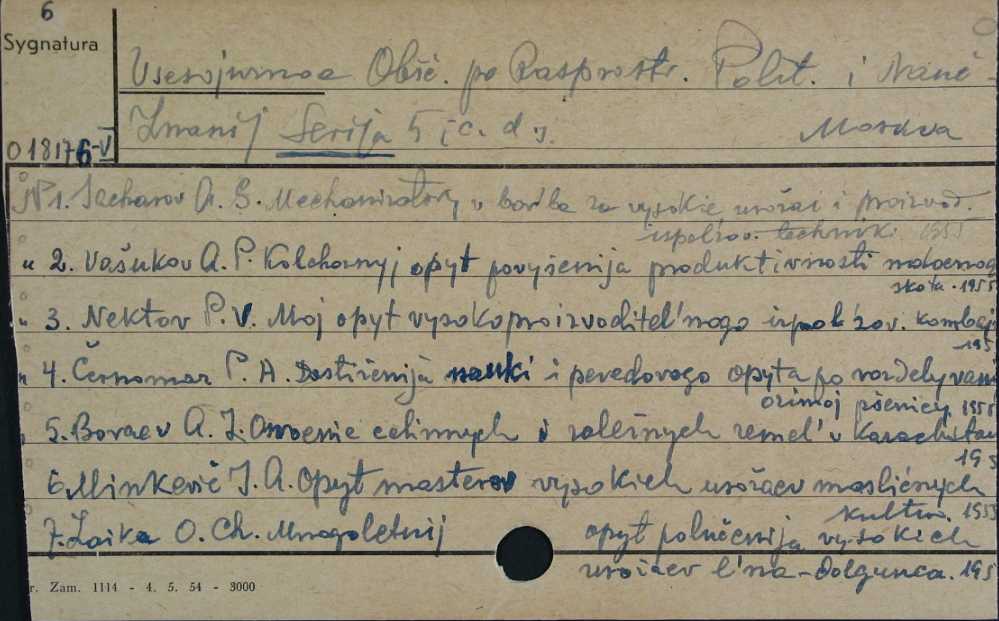 6
Sygnatura
Vsesojuznoe Obšč. po Rasprostr. Polit. i Nauč-
Znanij Serija 5 i c. d. Moskva
018176-V
N1. Sacharov A. S. Mechanizatory v bor'be za vysokie urožai i proizvod.
ispol'zov. techniki 1955
" 2. Vašukov A. P. Kolchoznyj opyt povyšenija produktivnosti moločnogo
skota. 1955
" 3. Nektov P. V. Moj opyt vysokoproizvoditel'nogo ispol'zov. kombaj
195
" 4. Černomaz P. A. Dostiženija nauki i peredovogo opyta po vozdelyvani
ozimoj pšenicy 1955
" 5. Boraev A. I. Osvoenie celinnych i zaležnych zemel' v Kazachstan
195
6. Minkevič I. A. Opyt masterov vysokich urožaev masličnych
kul'tur. 1955
7. Zaika O. Ch. Mnogoletnij opyt polučenija vysokich
urožaev l'na-dolgunca. 195
r. Zam. 1114 - 4. 5. 54 - 3000